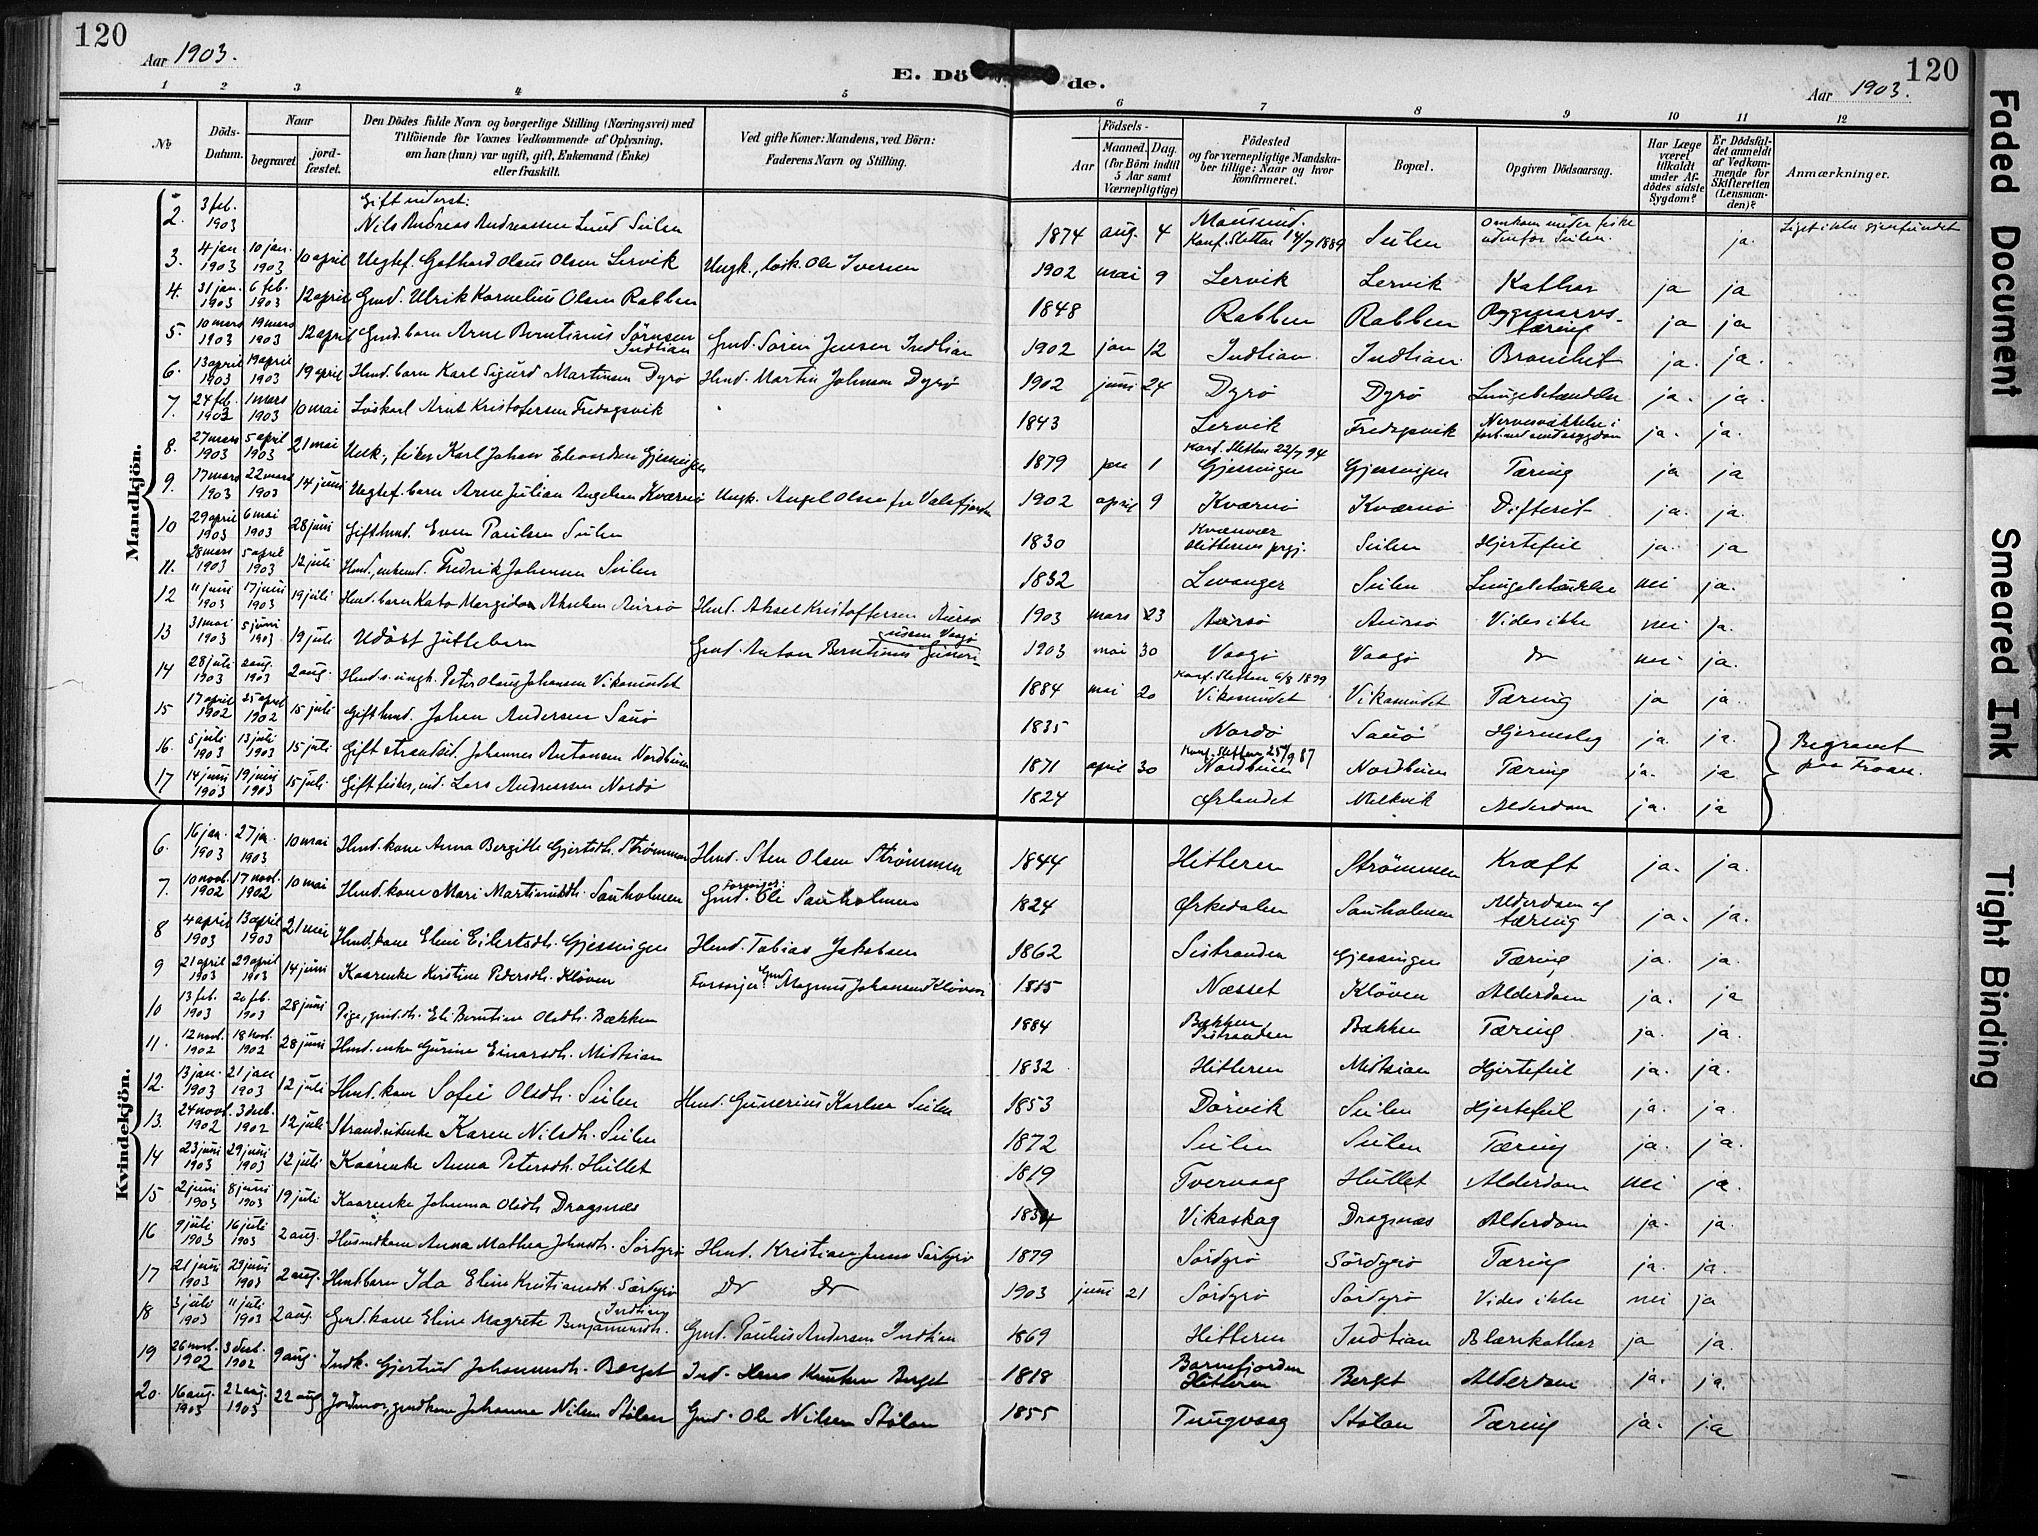 120
Aar 1903.
E. Dö de.
120
Aar 1903.
1 2 3 4 5 6 7 8 9 10 11 12
No
Döds-Datum.
Naar
begravet
jord-fæstet.
Den Dödes fulde Navn og borgerlige Stilling (Næringsvei) med
Tilföiende for Voxnes Vedkommende af Oplysning,
om han (hun) var ugift, gift, Enkemand (Enke)
eller fraskilt.
Ved gifte Koner: Mandens, ved Börn:
Faderens Navn og Stilling.
Födsels-
Aar
Maaned. Dag.
(for Börn indtil
5 Aar samt
Værnepligtige)
Födested
og for værnepligtige Mandska-
ber tillige: Naar og hvor
konfirmeret.
Bopæl.
Opgiven Dödsaarsag.
Har Læge
været
tilkaldt
under Af-
dödes sidste
Sygdom?
Er Dödsfal-
det anmeldt
af Vedkom-
mende for
Skifteretten
(Lensman-
den)?
Anmærkninger.
Mandkjön.
2. 3 feb. 1903 Gift inderst. Nils Andreas Andreassen Lund Sulen 1874 aug. 4 Mausund. Konf. Sletten 14/7 1889 Sulen Omkom under fiske udenfor Sulen. ja. Liget ikke gjenfundet
3. 4 jan. 1903 10 jan. 1903 10 april Uegtef. Gothard Olaus Olsen Lervik Ungk., løsk. Ole Iversen 1902 mai 9 Lervik Lervik Kathar ja ja
4. 31 jan. 1903 6 feb. 1903 12 april Gmd. Ulrik Kornelius Olsen Rabben 1848 Rabben Rabben Rygmarvs-tæring ja ja
5. 10 mars 1903 19 mars 1903 12 april Gmd. barn Arne Berntinius Sørensen Indtian Gmd. Sören Jensen Indtian 1902 jan 12 Indtian Indtian Bronchit ja. ja.
6. 13 april 1903 19 april 1903 19 april Hmd. barn Karl Sigurd Martinsen Dyrø Hmd. Martin Johnsen Dyrø 1902 juni 24 Dyrø Dyrø Lungebetændelse ja. ja.
7. 24 feb. 1903 1 mars 1903 10 mai Løskarl Arnt Kristofersen Fredagsvik 1843 Lervik Fredagsvik ja. ja.
8. 27 mars 1903 5 april 1903 21 mai Unk., fisker Karl Johan Edvardsen Gjessingen 1879 jan 1 Konf. Sletten 22/7 94 Gjessingen Gjessingen Tæring ja ja
9. 17 mars 1903 22 mars 1903 14 juni Uegtef. barn Arne Julian Angelsen Kværnø Ungk. Angel Olsen fra Valsfjorden 1902 april 9 Kværnø Kværnø Difterit ja. ja.
10 29 april 1903 6 mai 1903 28 juni Gift hmd. Even Paulsen Sulen 1830 Kvænvær Hitterens prgj. Sulen Hjertefeil ja. ja
11. 28 mars 1903 5 april 1903 12 juli Hmd., enkemd. Fredrik Johansen Sulen 1832 Levanger Sulen Lungebetændelse nei ja.
12 11 juni 1903 17 juni 1903 19 juli Hmd. barn Kato Margido Akselsen Aursø Hmd. Aksel Kristoffersen Aursø 1903 mars 23 Aursø Aursø Vides ikke nei ja.
13 31 mai 1903 5 juni 1903 19 juli Udöbt guttebarn Gmd. Anton Berntinus Vaagø 1903 mai 30 Vaagø Vaagø do nei ja.
14 28 juli 1903 2 aug. 1903 2 aug. Hmd. s. ungk. Peter Olaus Johansen Vikasundet 1884 mai 20 Konf. Sletten 6/8 1899 Vikasundet Vikasundet Tæring ja ja.
15 17 april 1902 25 april 1902 15 juli Gift hmd. Johan Andersen Sauø 1835 Nordø Sauø Hjerneslag ja. ja.
16. 5 juli 1903 13 juli 1903 15 juli Gift strandsid. Johannes Antonsen Nordbuen 1871 april 30 Konf. Sletten 25/9 87 Nordbuen Nordbuen Tæring ja. ja Begravet paa Froan.
17 14 juni 1903 19 juni 1903 15 juli Gift fisker, ind. Lars Andreassen Nordø 1824 Ørlandet Melkvik Alderdom ja. ja
Kvindekjön.
6. 16 jan. 1903 27 ja. 1903 10 mai Hmd. kone Anna Bergitte Gjertsdt. Strømmen Hmd. Sten Olsen Strømmen 1844 Hitteren Strømmen Kræft ja. ja.
7. 10 novb. 1902 17 novb. 1902 10 mai Hmd. kone Mari Martinusdt. Sauholmen Forsörger: Gmd. Ole Sauholmen 1824 Ørkedalen Sauholmen Alderdom og tæring ja. ja.
8 4 april 1903 13 april 1903 21 mai Hmd. kone Elen Eilertsdt. Gjessingen Hmd. Tobias Jakobsen 1862 Sistranden Gjessingen Tæring ja. ja.
9 21 april 1903 29 april 1903 14 juni Kaarenke Kirstine Pedersdt. Kløven Forsörger Gmd Magnus Johansen Kløven 1815 Næsset Kløven Alderdom ja. ja
10 13 feb. 1903 20 feb. 1903 28 juni Pige, gmd. dt. Eli Berntine Olsdt. Bækken 1884 Bækken Sistranden Bækken Tæring ja. ja.
11. 12 novb. 1902 18 novb. 1902 28 juni Hmd. enke Gurine Einarsdt. Midtian 1832 Hitteren Midtsian Hjertefeil ja. ja.
12. 13 jan. 1903 21 jan 1903 12 juli Hmd. kone Sofie Olsdt. Sulen Hmd. Gunerius Karlsen Sulen 1853 Dørvik Sulen Hjertefeil ja. ja.
13. 24 novb. 1902 3 desb. 1902 12 juli Strandsidenke Karen Nilsdt. Sulen 1872 Sulen Sulen Tæring ja. ja.
14 23 juni 1903 29 juni 1903 12 juli Kaarenke Anna Petersdt. Hullet 1819 Tvervaag Hullet Alderdom nei ja.
15 2 juni 1903 8 juni 1903 19 juli Kaarenke Johanna Olsdt. Dragsnæs 1834 Vikaskag Dragsnæs Alderdom ja. ja.
16 9 juli 1903 16 juli 1903 2 aug. Husmdkone Anna Mathea Johnsdt. Sørdyrø Hmd. Kristian Jensen Sørdyrø 1879 Sørdyrø Sørdyrø Tæring ja. ja.
17 21 juni 1903 29 juni 1903 2 aug. Hmd. barn Ida Eline Kristiansdt. Sørdyrø do do 1903 juni 21 Sørdyrø Sørdyrø Vides ikke nei ja
18 3 juli 1903 11 juli 1903 2 aug. Gmd. kone Eline Magrete Benjaminsdt. Indtian Gmd. Paulus Andersen Indtian 1869 Hitteren Indtian Blærekathar ja ja.
19 26 novb. 1902 3 desb. 1902 9 aug. Indk. Gjertrud Johannesdt. Berget Ind. Hans Knutsen Berget 1818 Barmfjorden Hitteren Berget Alderdom ja. ja.
20. 16 aug. 1903 22 aug. 1903 22 aug Jordmor, gmdkone Johanna Nilsen Stølan Gmd. Ole Nilsen Stølan 1855 Tungvaag Stølan Tæring ja. ja
Faded Document
Smeared Ink
Tight Binding